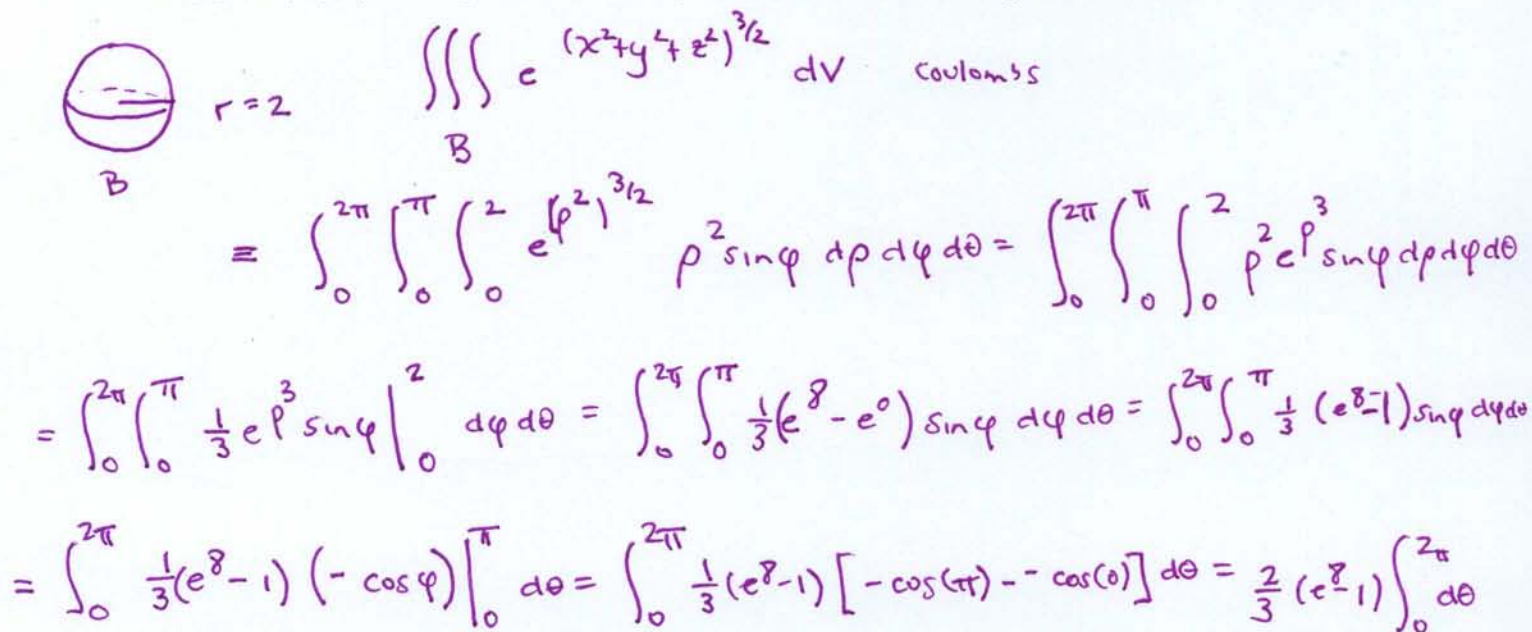 r = 2 ∭_B e^(x²+y²+z²)^{3/2} dV coulombs
B
= ∫_0^{2π} ∫_0^π ∫_0^2 e^(ρ²)^{3/2} ρ² sinφ dρ dφ dθ = ∫_0^{2π} ∫_0^π ∫_0^2 ρ² e^{ρ³} sinφ dρ dφ dθ
= ∫_0^{2π} ∫_0^π 1/3 e^{ρ³} sinφ |_0^2 dφ dθ = ∫_0^{2π} ∫_0^π 1/3 (e⁸ - e⁰) sinφ dφ dθ = ∫_0^{2π} ∫_0^π 1/3 (e⁸-1) sinφ dφ dθ
= ∫_0^{2π} 1/3 (e⁸-1) (-cosφ) |_0^π dθ = ∫_0^{2π} 1/3 (e⁸-1) [-cos(π) - -cos(0)] dθ = 2/3 (e⁸-1) ∫_0^{2π} dθ